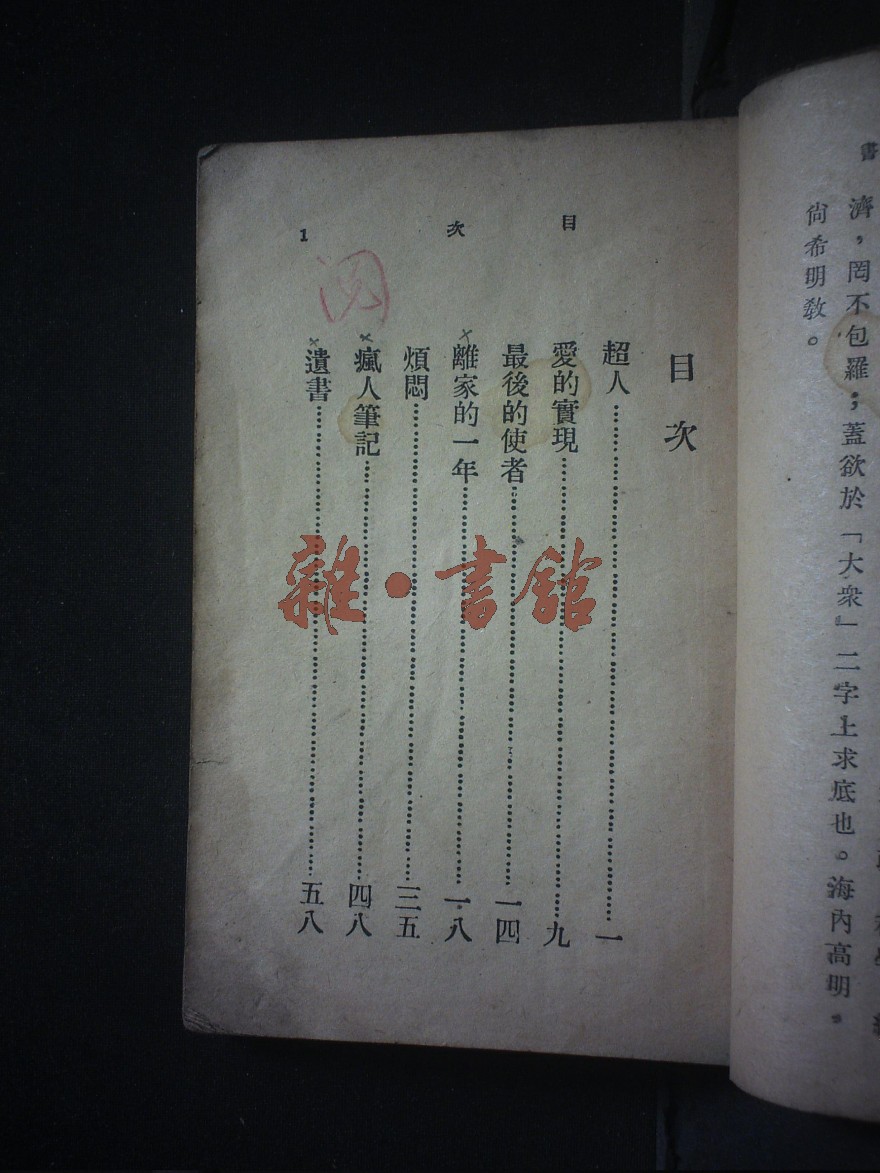 書
濟，罔不包羅；蓋欲於「大衆」二字上求底也。海內高明，
尙希明敎。
目 次 1
目次
超人……一
愛的實現……九
最後的使者……一四
離家的一年……一八
煩悶……三五
瘋人筆記……四八
遺書……五八
雜·書館